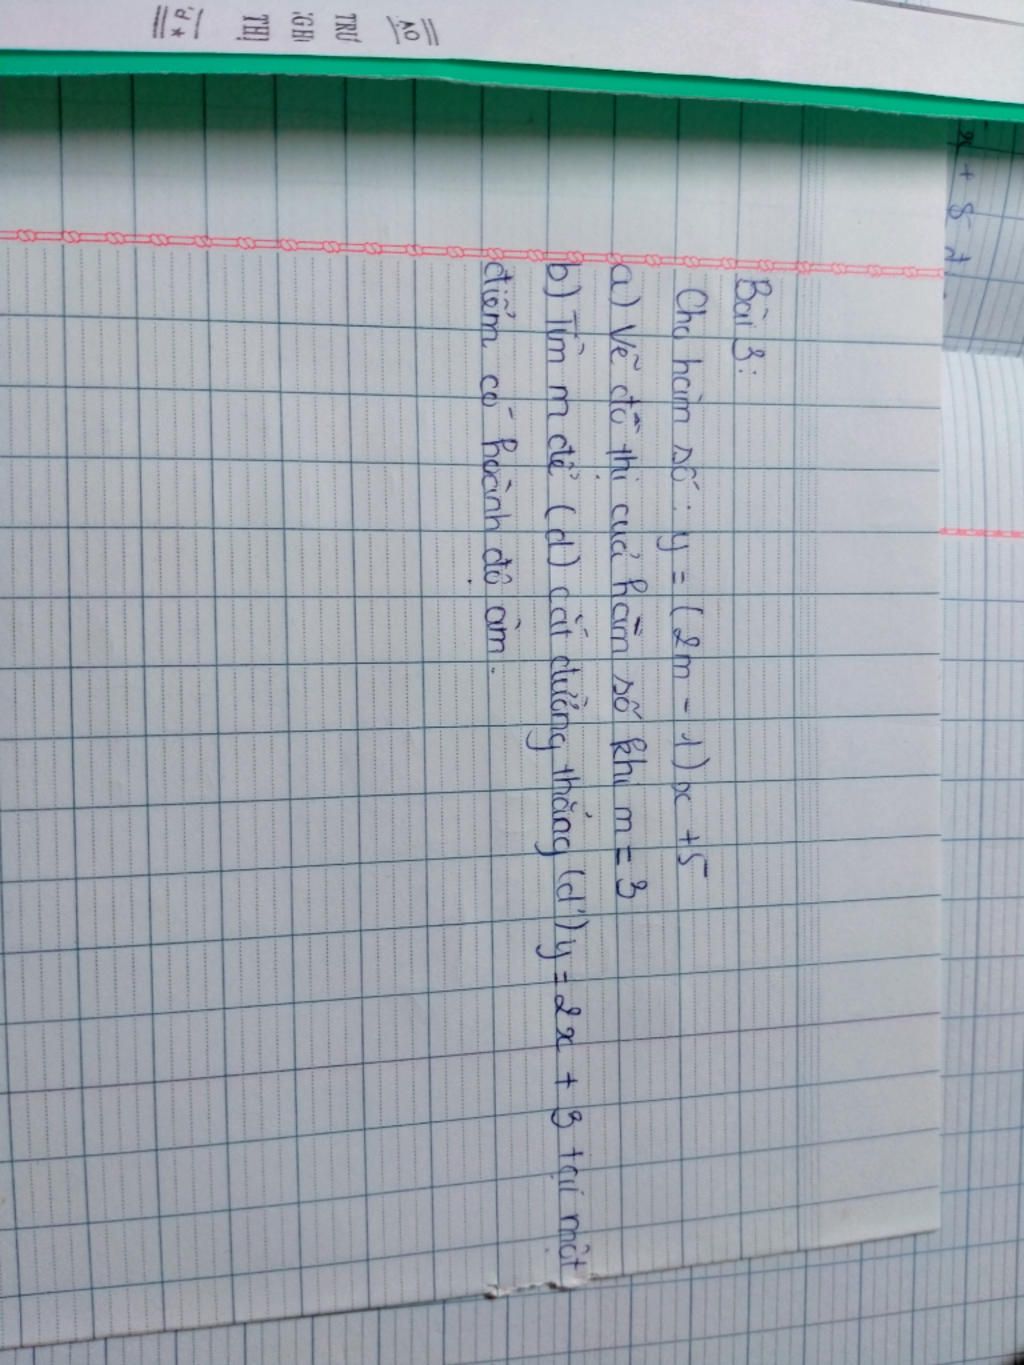 Bài 3:
Cho hàm số: y = (2m - 1)x + 5
a) Vẽ đồ thị của hàm số khi m = 3
b) Tìm m để (d) cắt đường thẳng (d') y = 2x + 3 tại một
điểm có hoành độ âm.
x + 5
TRƯ
THỊ